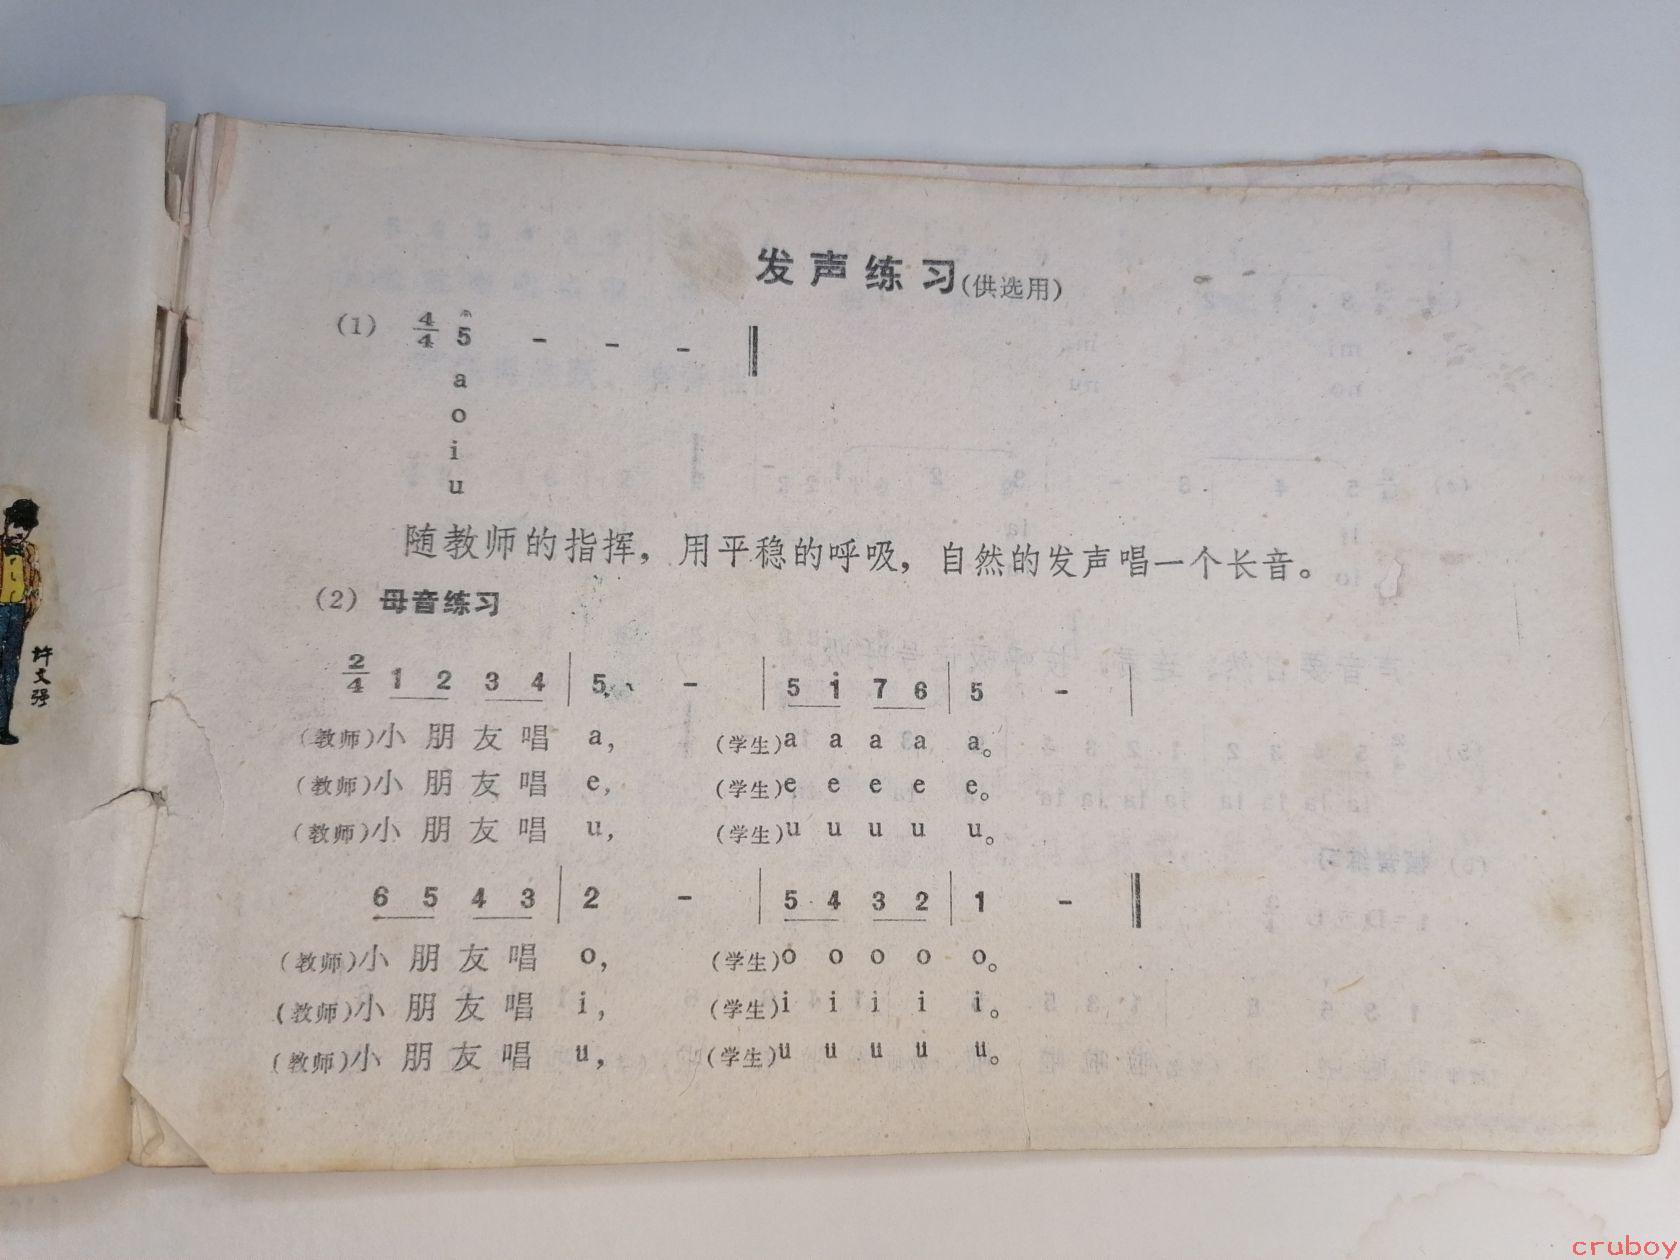 发声练习(供选用)
(1) 4/4 5 - - - ‖
a
o
i
u
随教师的指挥，用平稳的呼吸，自然的发声唱一个长音。
(2) 母音练习
2/4 1 2 3 4 | 5 - | 5 i 7 6 | 5 - |
(教师)小朋友唱 a， (学生)a a a a a。
(教师)小朋友唱 e， (学生)e e e e e。
(教师)小朋友唱 u， (学生)u u u u u。
6 5 4 3 | 2 - | 5 4 3 2 | 1 - ‖
(教师)小朋友唱 o， (学生)o o o o o。
(教师)小朋友唱 i， (学生)i i i i i。
(教师)小朋友唱 u， (学生)u u u u u。
许文强
cruboy